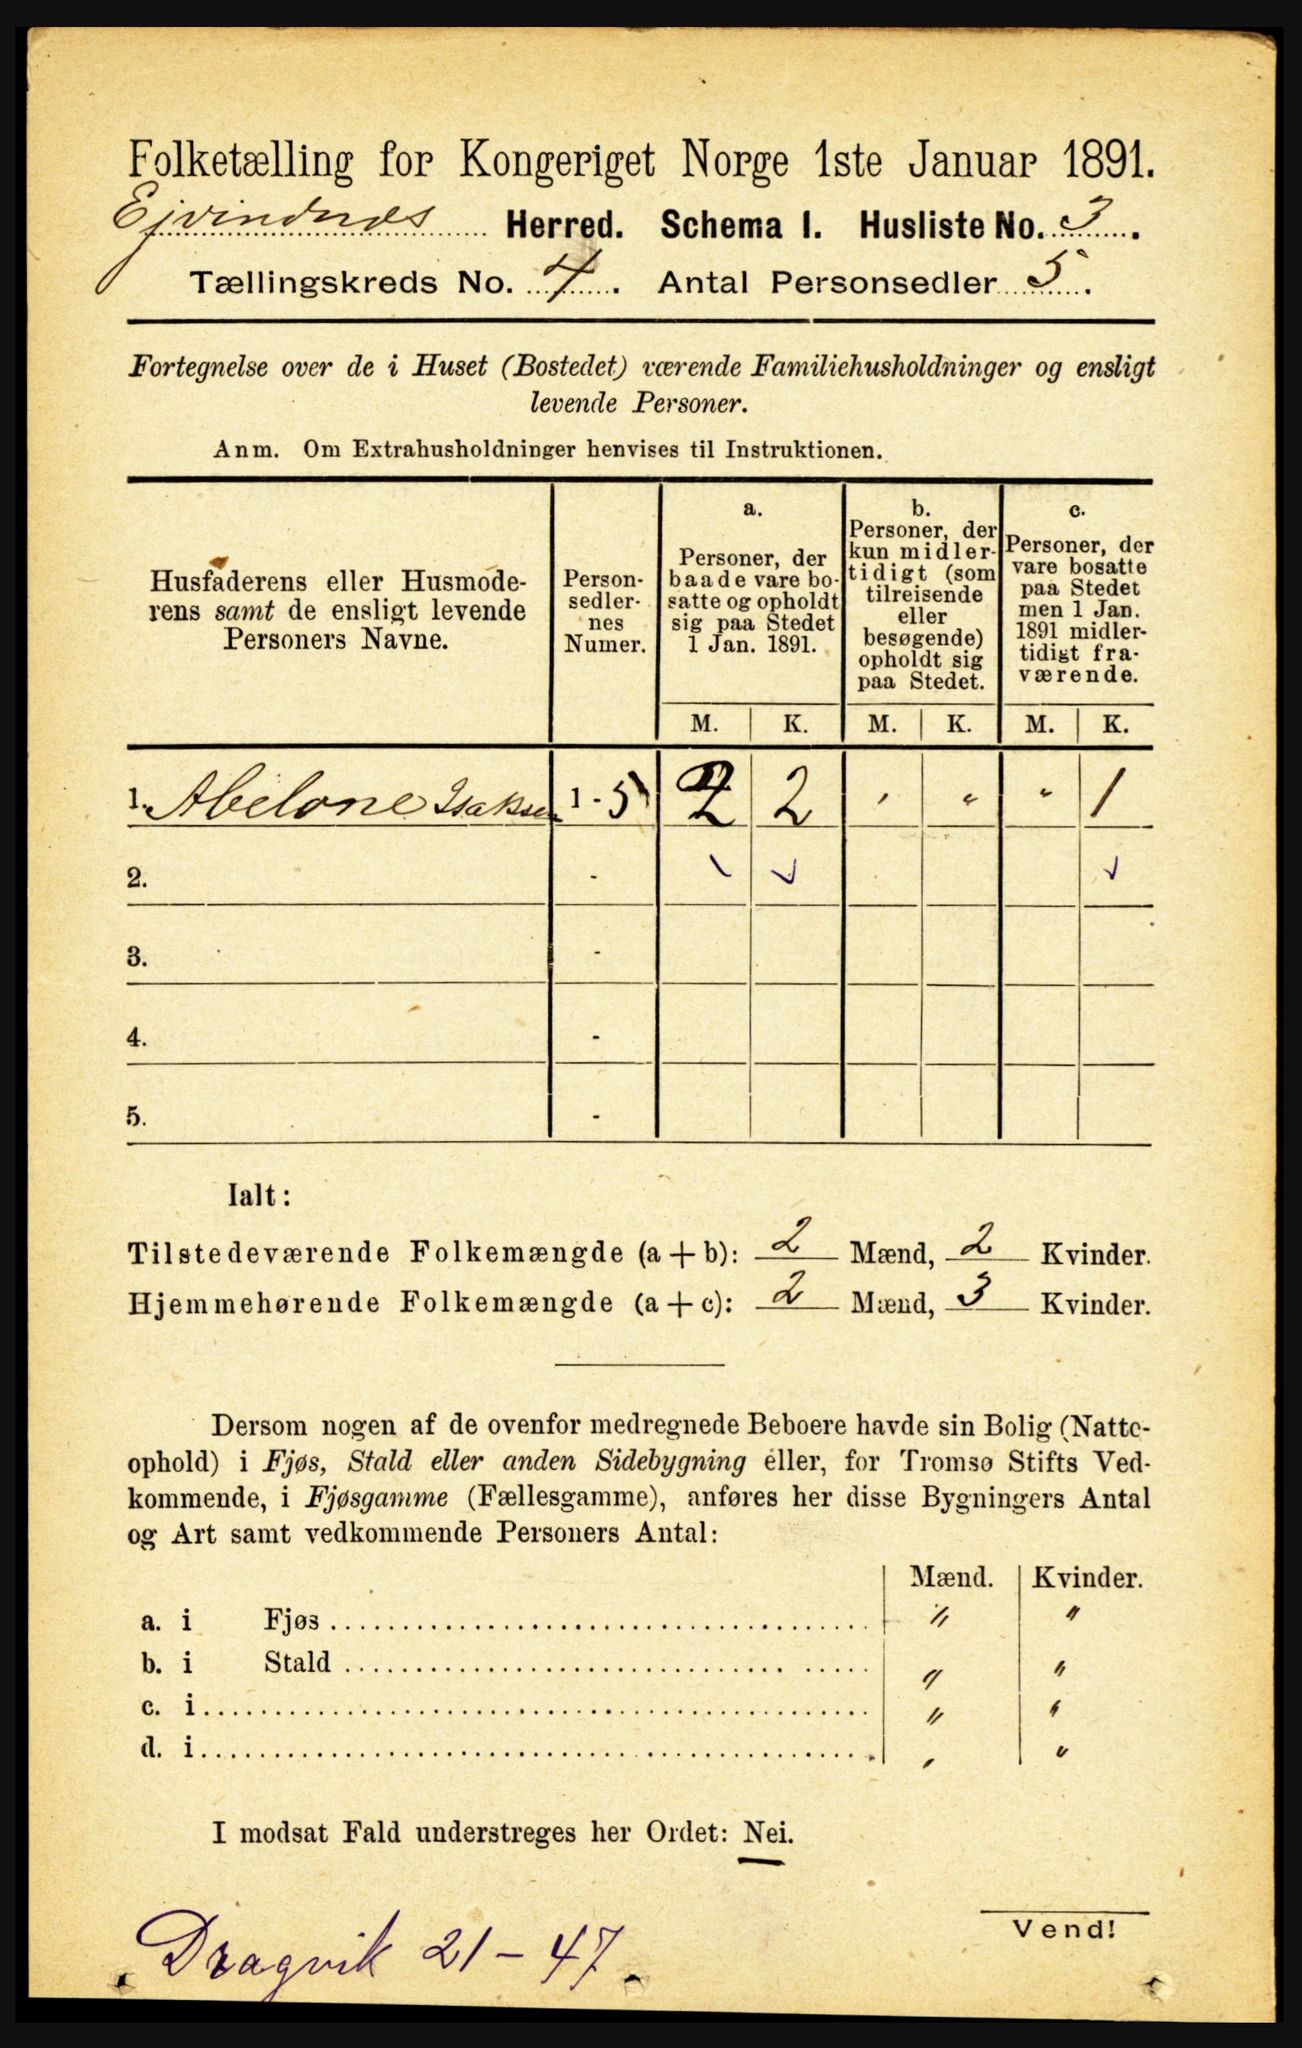 Folketælling for Kongeriget Norge 1ste Januar 1891.
Ejvindnæs Herred. Schema I. Husliste No. 3.
Tællingskreds No. 4. Antal Personsedler 5.
Fortegnelse over de i Huset (Bostedet) værende Familiehusholdninger og ensligt
levende Personer.
Anm. Om Extrahusholdninger henvises til Instruktionen.
Husfaderens eller Husmode-
rens samt de ensligt levende
Personers Navne.
Person-
sedler-
nes
Numer.
a.
Personer, der
baade vare bo-
satte og opholdt
sig paa Stedet
1 Jan. 1891.
b.
Personer, der
kun midler-
tidigt (som
tilreisende
eller
besøgende)
opholdt sig
paa Stedet.
c.
Personer, der
vare bosatte
paa Stedet
men 1 Jan.
1891 midler-
tidigt fra-
værende.
M. K. M. K. M. K.
1. Abelone Isaksen 1 - 5 2 2 " " " 1
2. -
3. -
4. -
5. -
Ialt:
Tilstedeværende Folkemængde (a + b): 2 Mænd, 2 Kvinder.
Hjemmehørende Folkemængde (a + c): 2 Mænd, 3 Kvinder.
Dersom nogen af de ovenfor medregnede Beboere havde sin Bolig (Natte-
ophold) i Fjøs, Stald eller anden Sidebygning eller, for Tromsø Stifts Ved-
kommende, i Fjøsgamme (Fællesgamme), anføres her disse Bygningers Antal
og Art samt vedkommende Personers Antal:
Mænd. Kvinder.
a. i Fjøs " "
b. i Stald " "
c. i " "
d. i " "
I modsat Fald understreges her Ordet: Nei.
Vend!
Dragvik 21 - 47